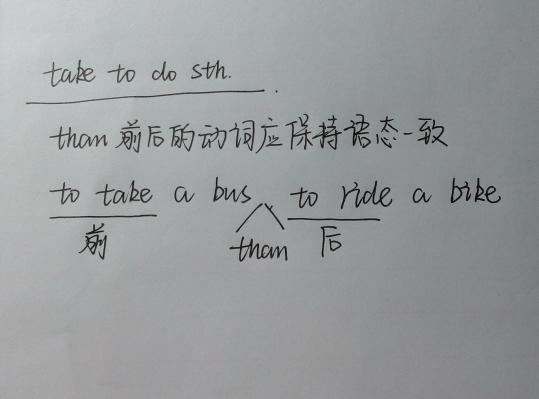 take to do sth.
than 前后的动词应保持语态一致
to take a bus to ride a bike
前 than 后